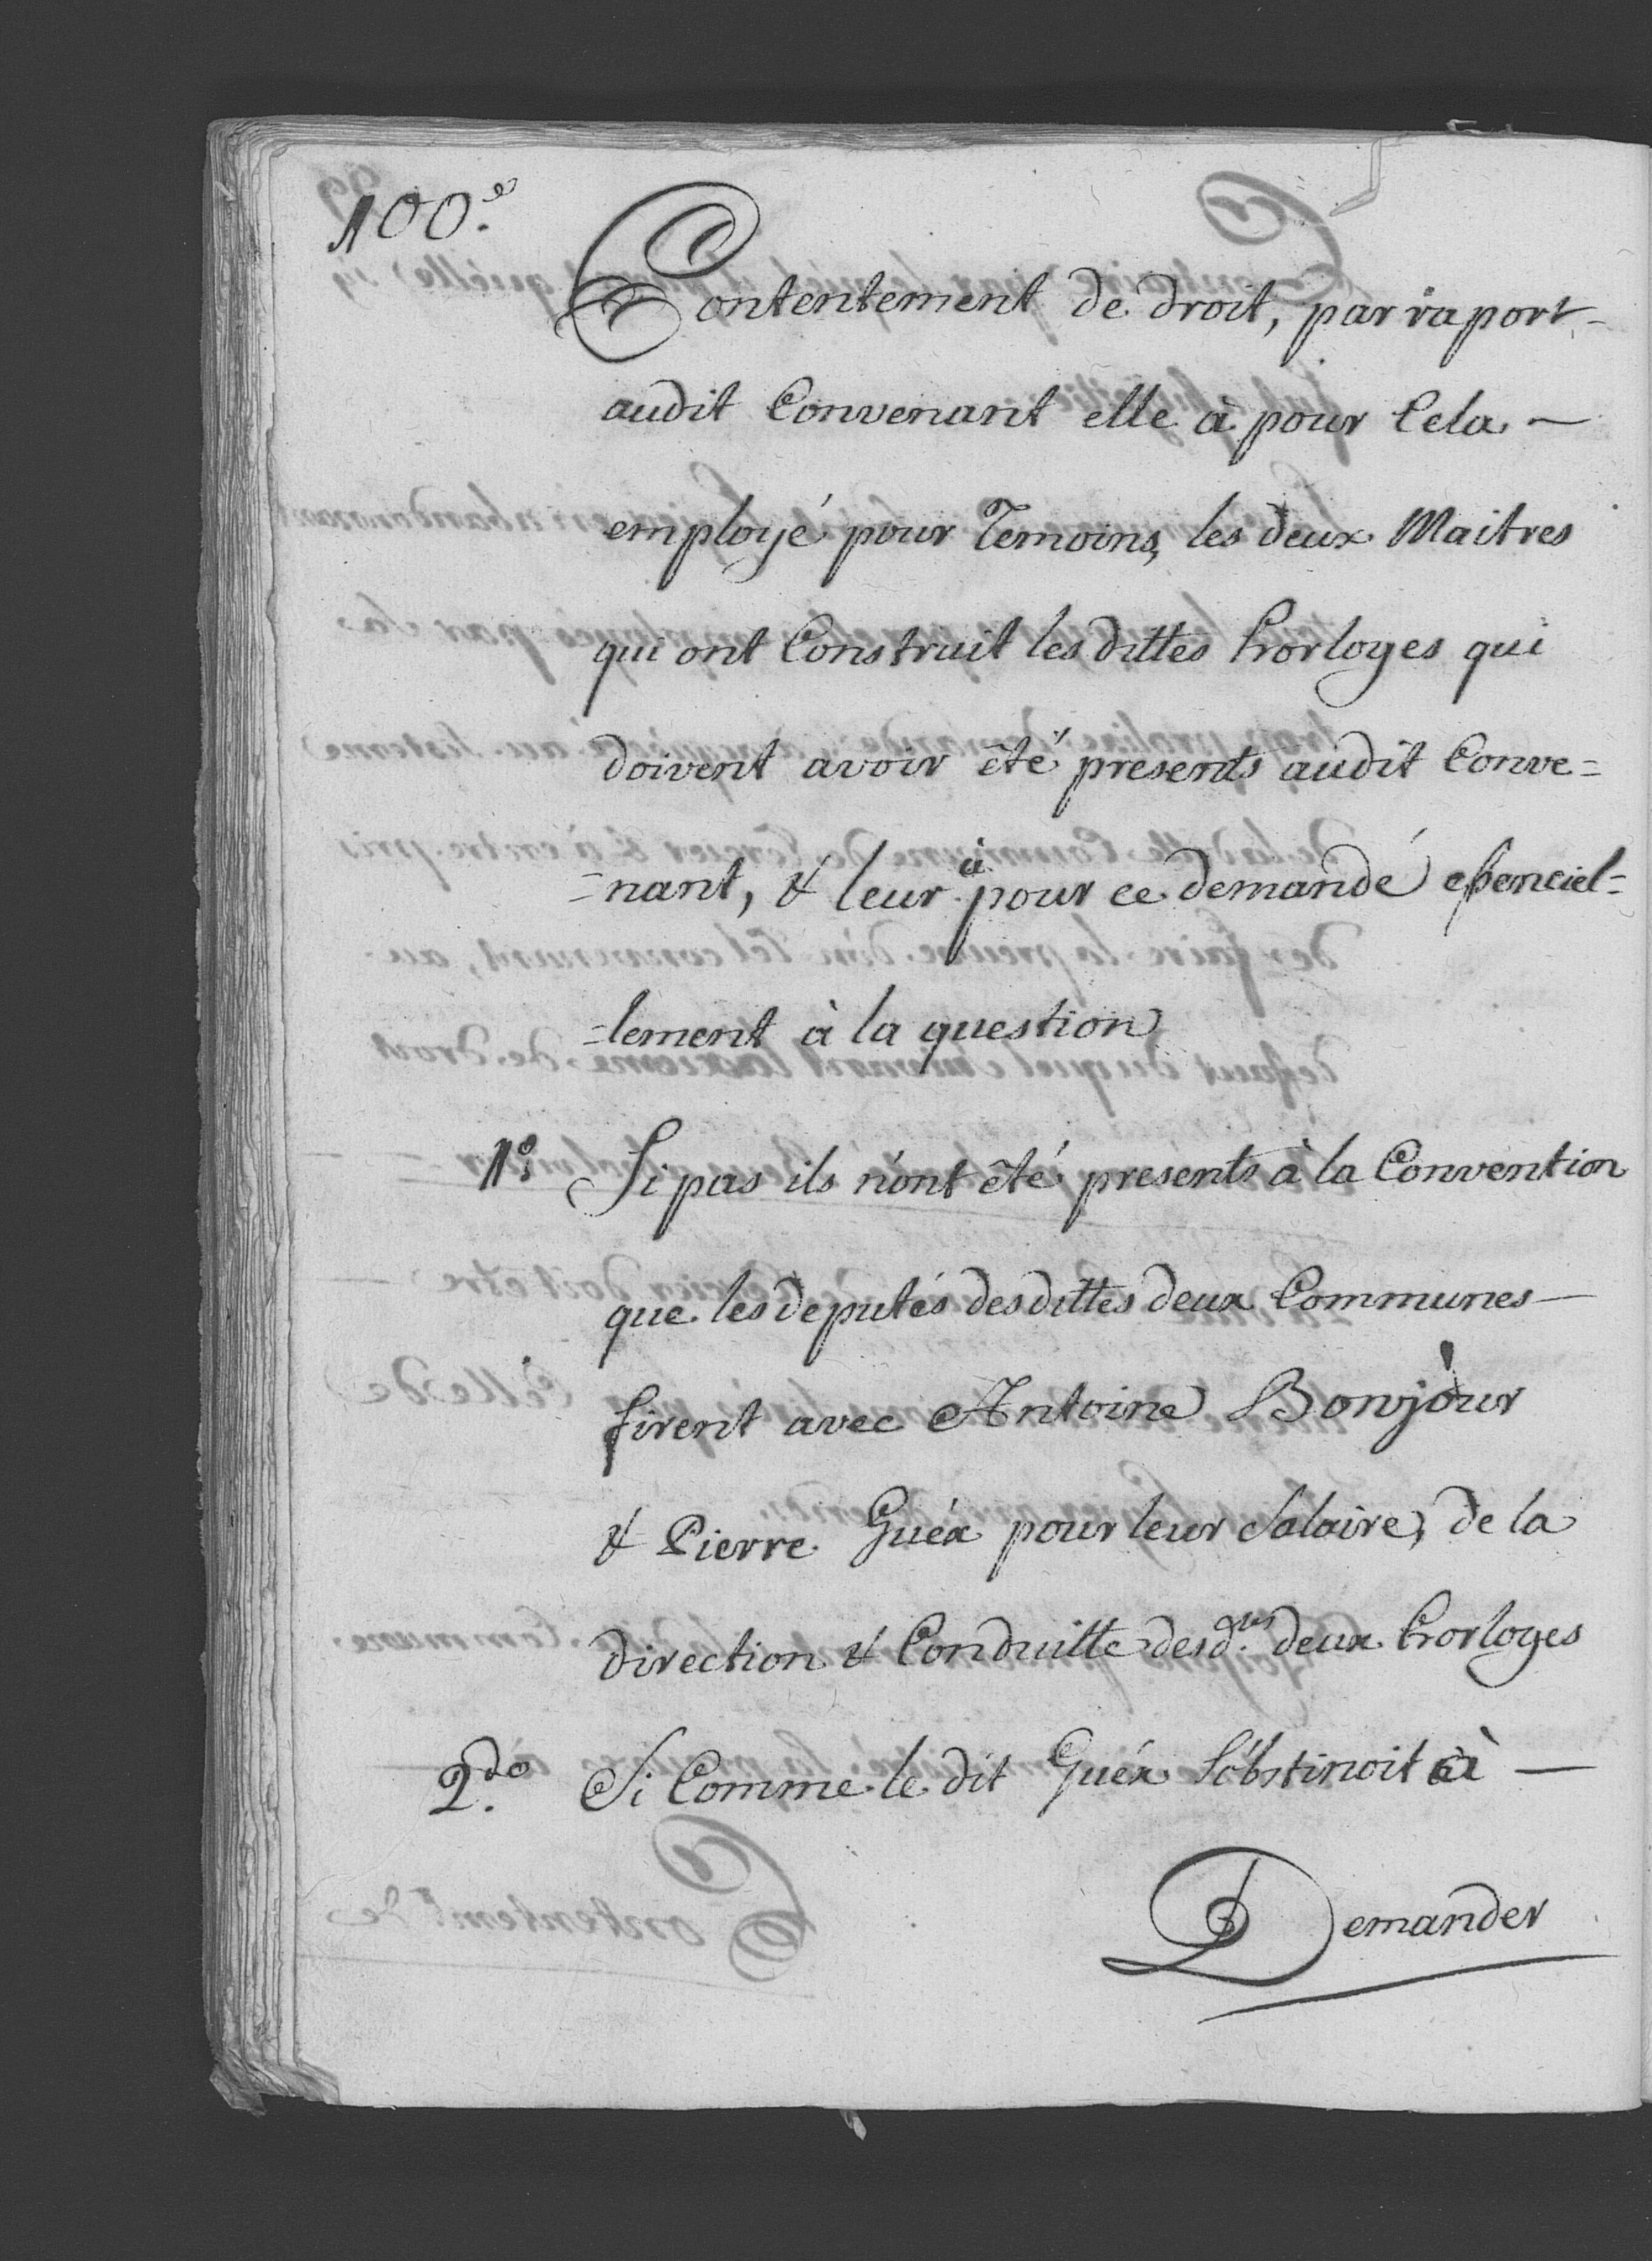 100.e
Contentement de droit, par raport
audit Convenant elle à pour Cela —
employé pour Temoins, les deux Maitres
qui ont Construit les dittes horloges qui
doivent avoir êté presents audit Conve=
=nant, & leur à pour ce demandé essenciel=
=lement à la question
1.o Si pas ils n'ont êté presents à la Convention
que les deputés des dittes deux Communes —
firent avec Antoine Bonjour
& Pierre Guéx pour leur Salaire, de la
direction & Conduitte desd.tes deux horloges
2.do Si Comme le dit Guéx S'obstinoit à —
Demander